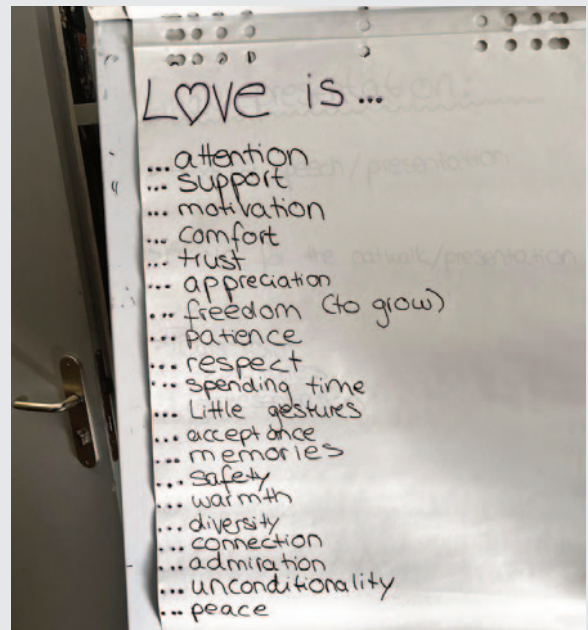 LOVE is...
... attention
... support
... motivation
... comfort
... trust
... appreciation
... freedom (to grow)
... patience
... respect
... spending time
... Little gestures
... acceptance
... memories
... safety
... warmth
... diversity
... connection
... admiration
... unconditionality
... peace